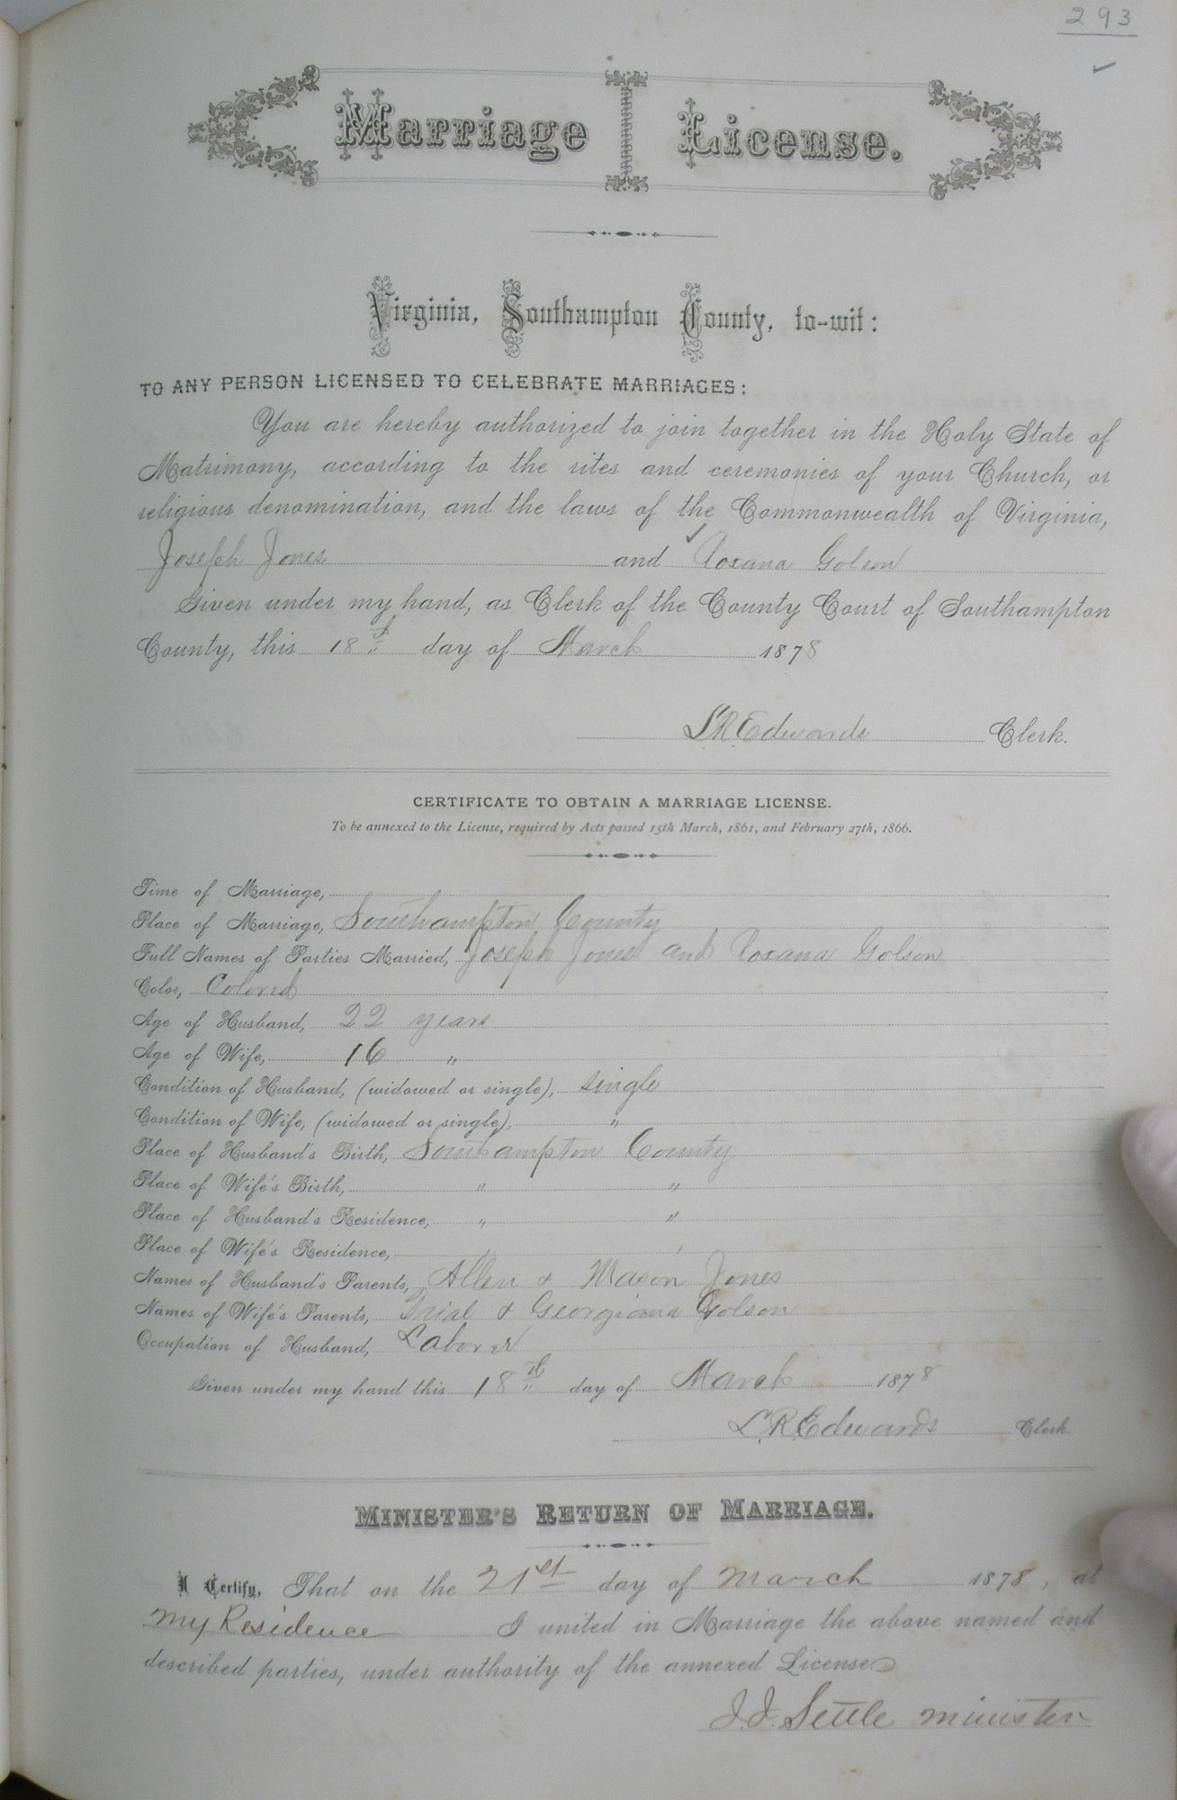 293
Marriage License.
Virginia, Southampton County, to-wit:
TO ANY PERSON LICENSED TO CELEBRATE MARRIAGES:
You are hereby authorized to join together in the Holy State of
Matrimony, according to the rites and ceremonies of your Church, or
religious denomination, and the laws of the Commonwealth of Virginia,
Joseph Jones and Roxana Golson
Given under my hand, as Clerk of the County Court of Southampton
County, this 18th day of March 1878
L R Edwards Clerk.
CERTIFICATE TO OBTAIN A MARRIAGE LICENSE.
To be annexed to the License, required by Acts passed 15th March, 1861, and February 27th, 1866.
Time of Marriage,
Place of Marriage, Southampton County
Full Names of Parties Married, Joseph Jones and Roxana Golson
Color, Colored
Age of Husband, 22 years
Age of Wife, 16 "
Condition of Husband, (widowed or single), single
Condition of Wife, (widowed or single), "
Place of Husband's Birth, Southampton County
Place of Wife's Birth, " "
Place of Husband's Residence, " "
Place of Wife's Residence, " "
Names of Husband's Parents, Allen & Mason Jones
Names of Wife's Parents, Trial & Georgiana Golson
Occupation of Husband, Laborer
Given under my hand this 18th day of March 1878
L. R. Edwards Clerk.
MINISTER'S RETURN OF MARRIAGE.
I Certify, That on the 21st day of March 1878, at
my Residence I united in Marriage the above named and
described parties, under authority of the annexed License.
J. J. Settle minister